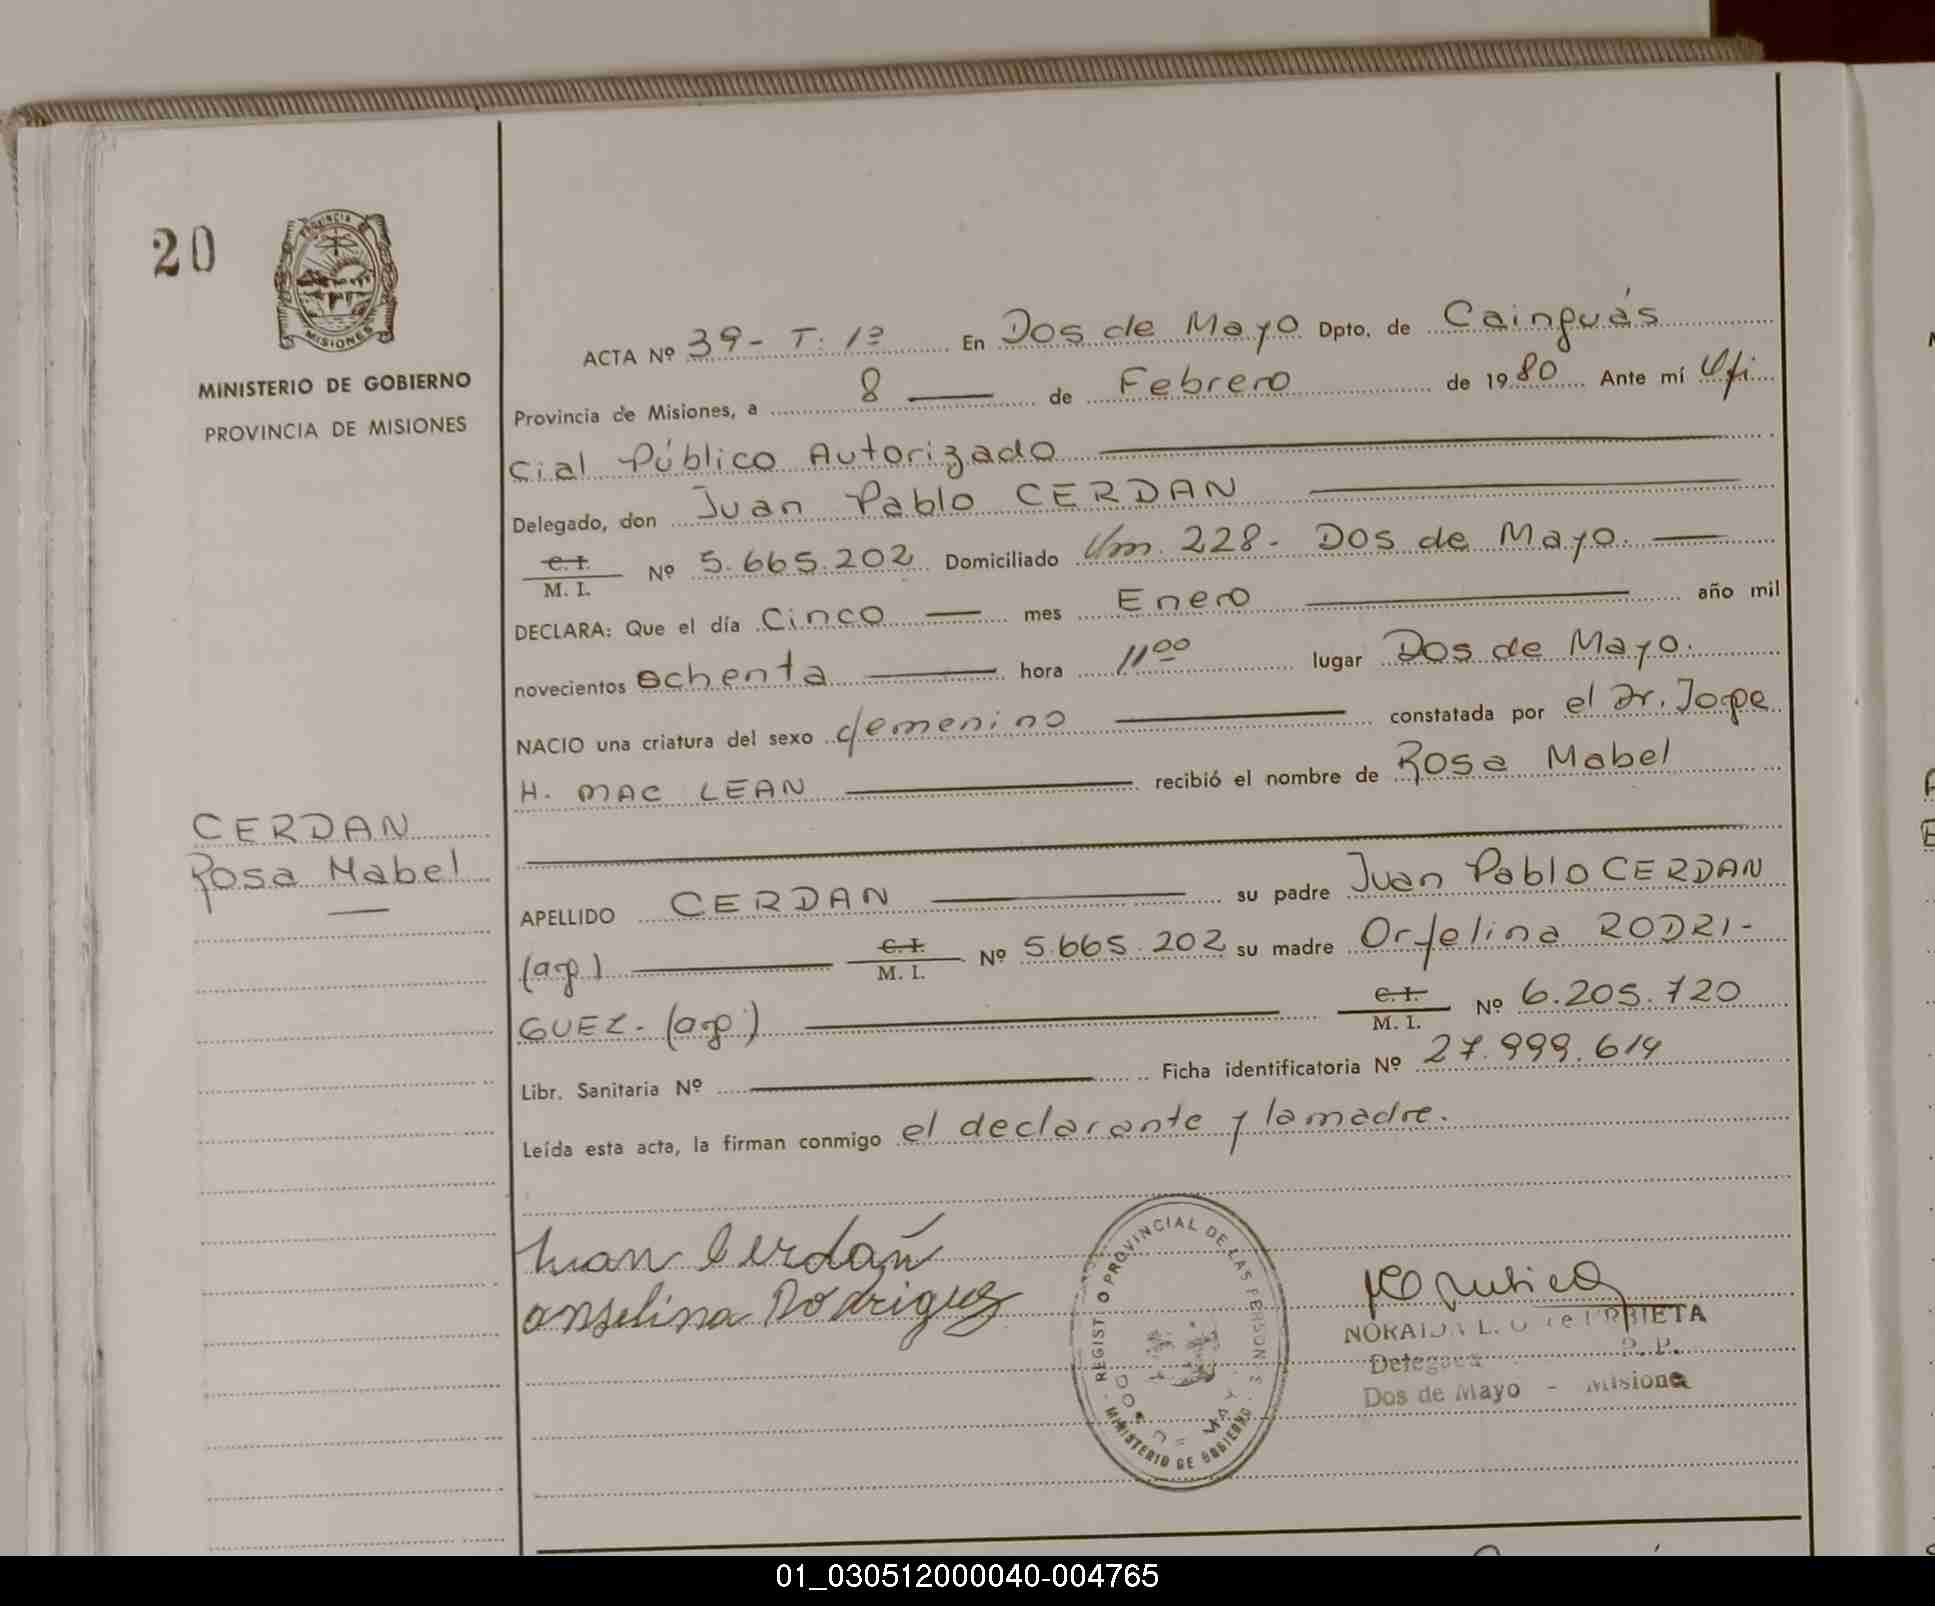 20
PROVINCIA
MISIONES
MINISTERIO DE GOBIERNO
PROVINCIA DE MISIONES
ACTA Nº 39- T. 1º En Dos de Mayo Dpto. de Cainguás
Provincia de Misiones, a 8 — de Febrero de 1980 Ante mí Ofi
cial Público Autorizado
Delegado, don Juan Pablo CERDAN
C. I.
M. I. Nº 5.665.202 Domiciliado Km. 228- Dos de Mayo. —
DECLARA: Que el día Cinco — mes Enero — año mil
novecientos ochenta — hora 11 00 lugar Dos de Mayo.
NACIO una criatura del sexo femenino — constatada por el Dr. Jorge
H. MAC LEAN — recibió el nombre de Rosa Mabel
CERDAN
Rosa Mabel
APELLIDO CERDAN — su padre Juan Pablo CERDAN
(arg) — C. I.
M. I. Nº 5.665.202 su madre Orfelina RODRI-
GUEZ- (arg.) — C. I.
M. I. Nº 6.205.720
Libr. Sanitaria Nº — Ficha identificatoria Nº 27.999.614
Leída esta acta, la firman conmigo el declarante y la madre.
Juan Cerdán
Rodriguez
REGISTRO PROVINCIAL DE LAS PERSONAS
MINISTERIO DE GOBIERNO
DOS DE MAYO
URRIETA
Dos de Mayo - Misiones
01_030512000040-004765